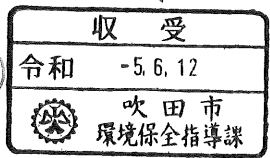 収受
令和 -5.6.12
吹田市
環境保全指導課